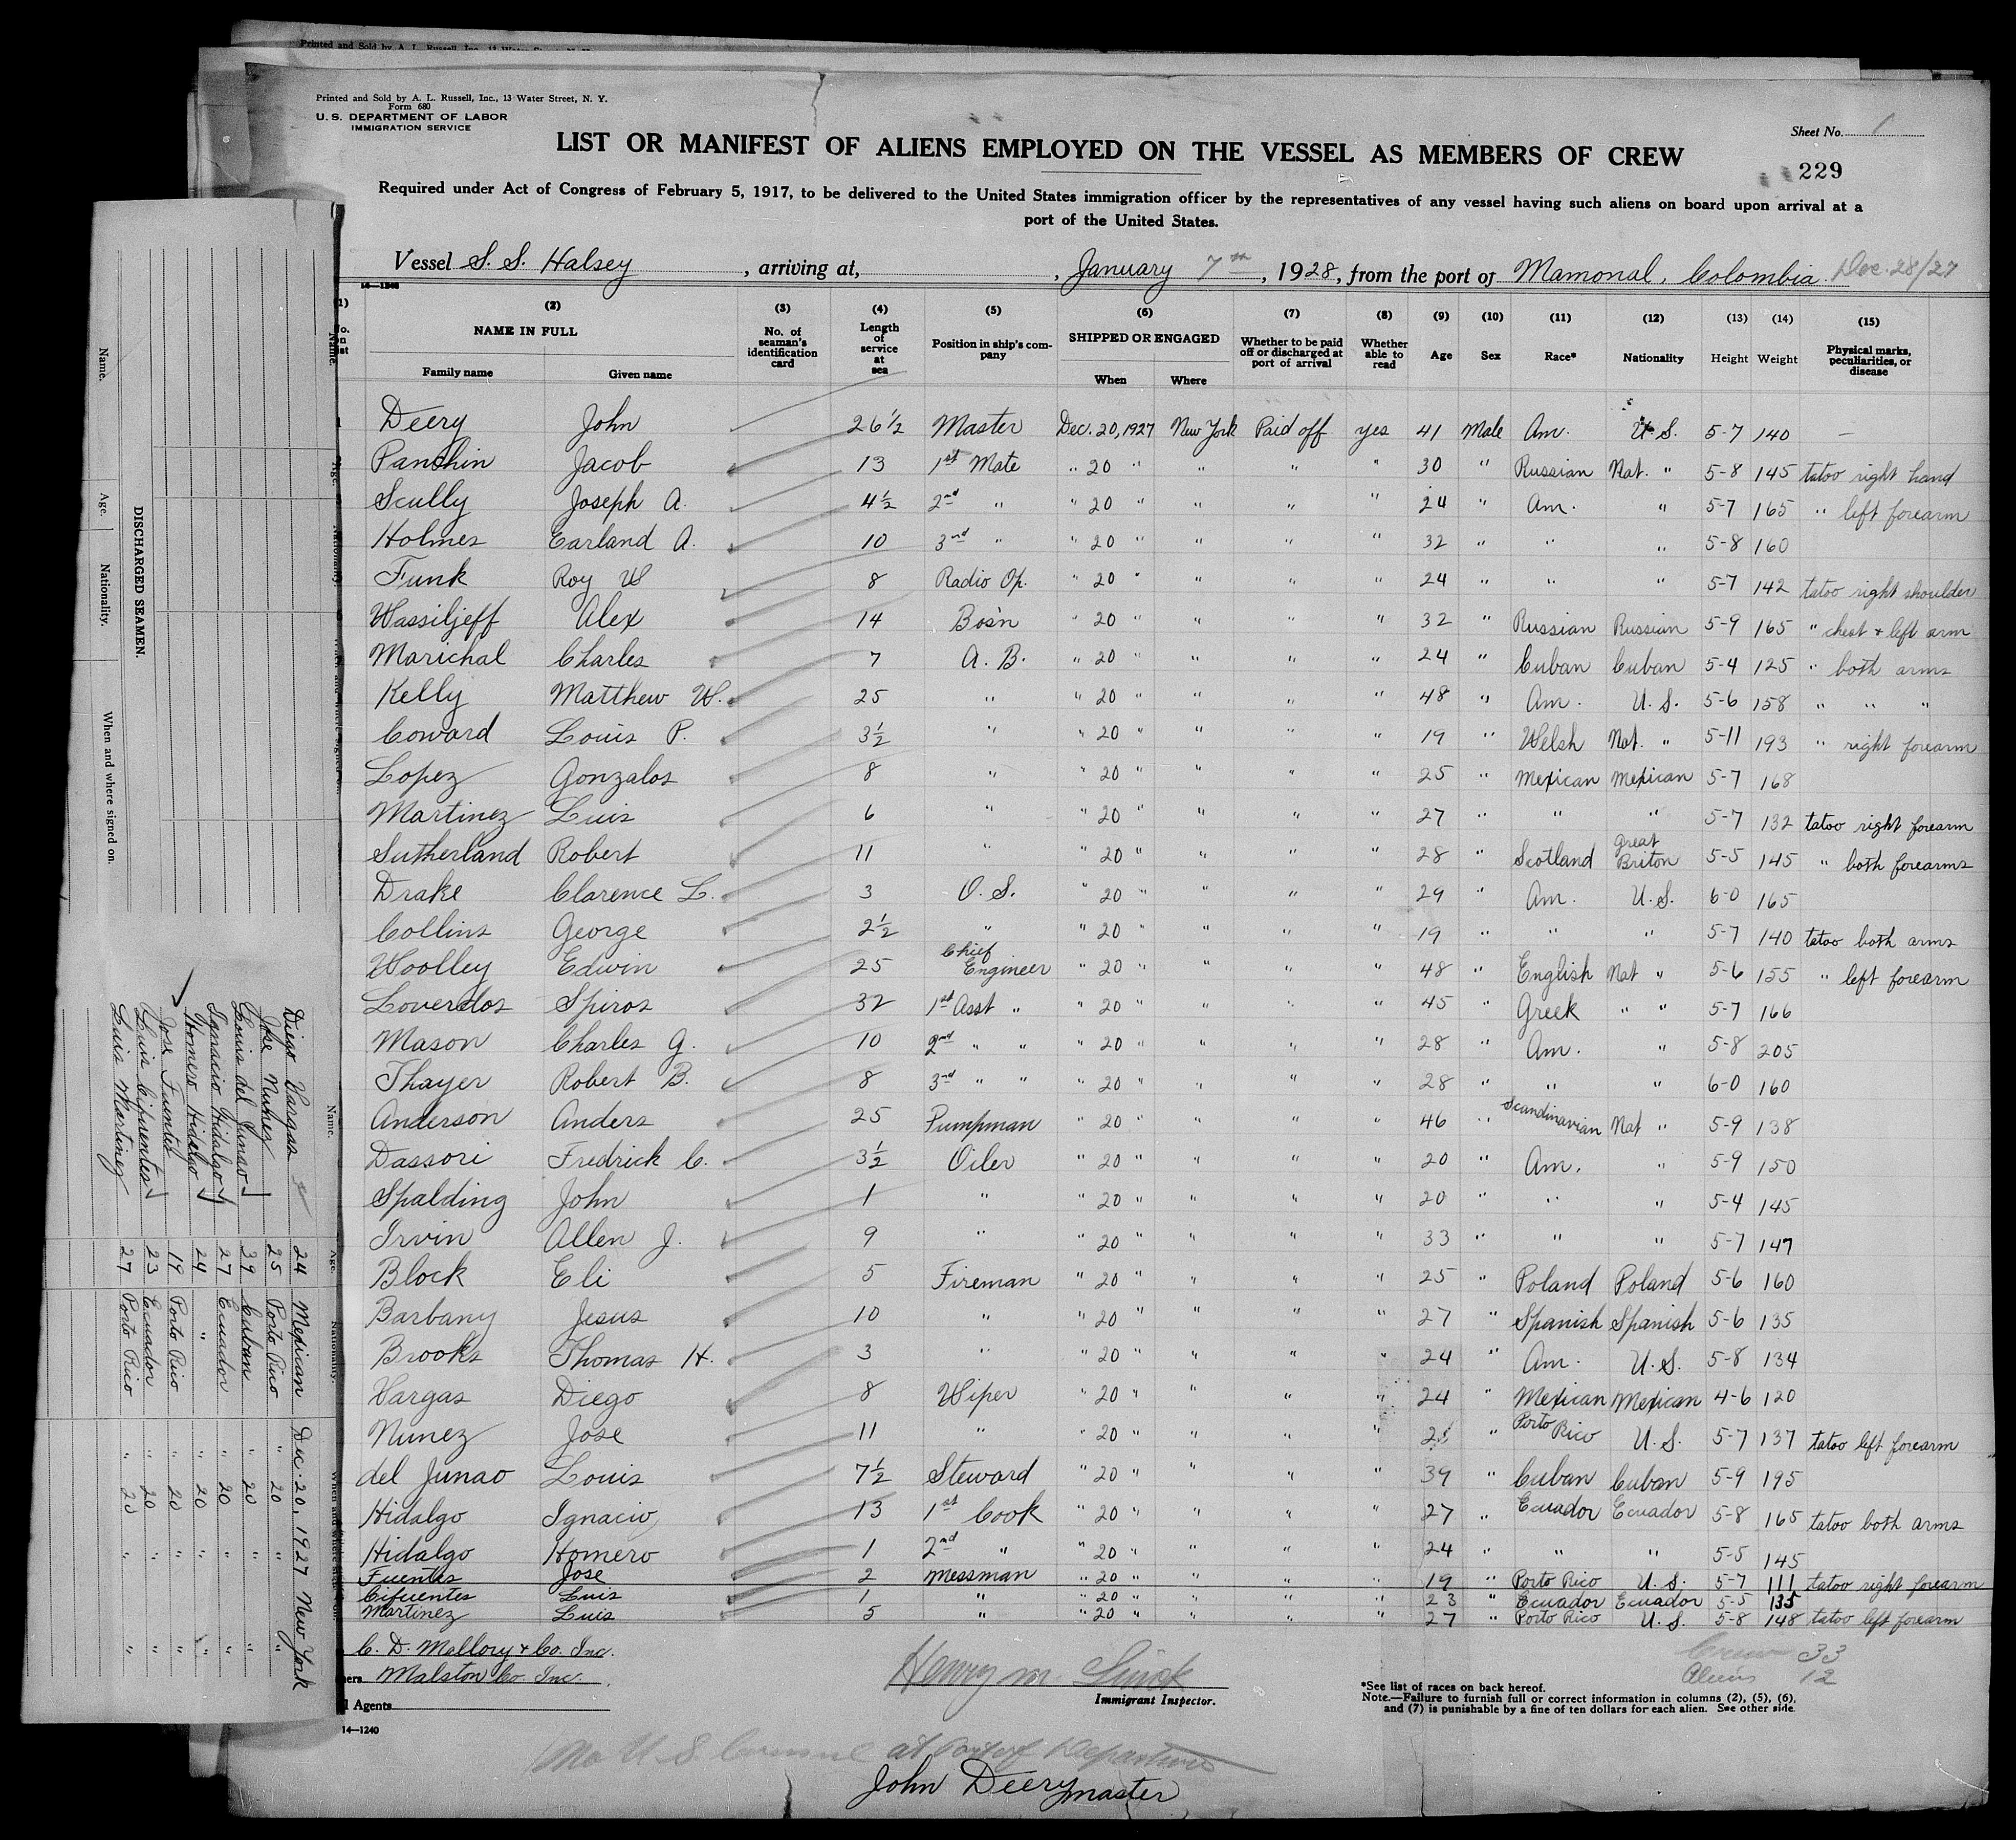 Printed and Sold by A. L. Russell, Inc., 13 Water Street, N. Y.
Form 680
U. S. DEPARTMENT OF LABOR
IMMIGRATION SERVICE
Sheet No. 1
LIST OR MANIFEST OF ALIENS EMPLOYED ON THE VESSEL AS MEMBERS OF CREW
229
Required under Act of Congress of February 5, 1917, to be delivered to the United States immigration officer by the representatives of any vessel having such aliens on board upon arrival at a
port of the United States.
Vessel S. S. Halsey, arriving at, , January 7th, 1928, from the port of Mamonal, Colombia. Dec. 28/27
(2) (3) (4) (5) (6) (7) (8) (9) (10) (11) (12) (13) (14) (15)
NAME IN FULL No. of seaman's identification card Length of service at sea Position in ship's company SHIPPED OR ENGAGED Whether to be paid off or discharged at port of arrival Whether able to read Age Sex Race* Nationality Height Weight Physical marks, peculiarities, or disease
Family name Given name When Where
Deery John 26 1/2 Master Dec. 20, 1927 New York Paid off yes 41 Male Am. U. S. 5-7 140 —
Panshin Jacob 13 1st Mate " 20 " " " " 30 " Russian Nat. " 5-8 145 tatoo right hand
Scully Joseph A. 4 1/2 2nd " " 20 " " " " 24 " Am. " 5-7 165 " left forearm
Holmes Earland A. 10 3rd " " 20 " " " " 32 " " " 5-8 160
Funk Roy W 8 Radio Op. " 20 " " " " 24 " " " 5-7 142 tatoo right shoulder
Wassiljeff Alex 14 Bos'n " 20 " " " " 32 " Russian Russian 5-9 165 " chest + left arm
Marichal Charles 7 A. B. " 20 " " " " 24 " Cuban Cuban 5-4 125 " both arms
Kelly Matthew W. 25 " " 20 " " " " 48 " Am. U. S. 5-6 158 " " "
Coward Louis P. 3 1/2 " " 20 " " " " 19 " Welsh Nat. " 5-11 193 " right forearm
Lopez Gonzalos 8 " " 20 " " " " 25 " Mexican Mexican 5-7 168
Martinez Luis 6 " " 20 " " " " 27 " " " 5-7 132 tatoo right forearm
Sutherland Robert 11 " " 20 " " " " 28 " Scotland Great Briton 5-5 145 " both forearms
Drake Clarence L. 3 O. S. " 20 " " " " 29 " Am. U. S. 6-0 165
Collins George 2 1/2 " " 20 " " " " 19 " " " 5-7 140 tatoo both arms
Woolley Edwin 25 Chief Engineer " 20 " " " " 48 " English Nat " 5-6 155 " left forearm
Loverdos Spiros 32 1st Asst " " 20 " " " " 45 " Greek " " 5-7 166
Mason Charles G. 10 2nd " " " 20 " " " " 28 " Am. " 5-8 205
Thayer Robert B. 8 3rd " " " 20 " " " " 28 " " " 6-0 160
Anderson Anders 25 Pumpman " 20 " " " " 46 " Scandinavian Nat " 5-9 138
Dassori Fredrick C. 3 1/2 Oiler " 20 " " " " 20 " Am. " 5-9 150
Spalding John 1 " " 20 " " " " 20 " " " 5-4 145
Irvin Allen J. 9 " " 20 " " " " 33 " " " 5-7 147
Block Eli 5 Fireman " 20 " " " " 25 " Poland Poland 5-6 160
Barbany Jesus 10 " " 20 " " " " 27 " Spanish Spanish 5-6 135
Brooks Thomas H. 3 " " 20 " " " " 24 " Am. U. S. 5-8 134
Vargas Diego 8 Wiper " 20 " " " " 24 " Mexican Mexican 4-6 120
Nunez Jose 11 " " 20 " " " " 25 " Porto Rico U. S. 5-7 137 tatoo left forearm
del Junao Louis 7 1/2 Steward " 20 " " " " 39 " Cuban Cuban 5-9 195
Hidalgo Ignacio 13 1st Cook " 20 " " " " 27 " Ecuador Ecuador 5-8 165 tatoo both arms
Hidalgo Homero 1 2nd " " 20 " " " " 24 " " " 5-5 145
Fuentes Jose 2 messman " 20 " " " " 19 " Porto Rico U. S. 5-7 111 tatoo right forearm
Cifuentes Luis 1 " " 20 " " " " 23 " Ecuador Ecuador 5-5 135
Martinez Luis 5 " " 20 " " " " 27 " Porto Rico U. S. 5-8 148 tatoo left forearm
C. D. Mallory & Co. Inc.
Malston Co. Inc.
Agents
14—1240
Henry M.
Immigrant Inspector.
Crew 33
Aliens 12
*See list of races on back hereof.
Note.—Failure to furnish full or correct information in columns (2), (5), (6),
and (7) is punishable by a fine of ten dollars for each alien. See other side.
No U S Consul at Port of Departure
John Deery master
DISCHARGED SEAMEN.
Name. Age. Nationality. When and where signed on.
Diego Vargas 24 Mexican Dec. 20, 1927 New York
Jose Nunez 25 Porto Rico " 20 "
Louis del Junao 39 Cuban " 20 "
Ignacio Hidalgo 27 Ecuador " 20 "
Homero Hidalgo 24 " " 20 "
Jose Fuentes 19 Porto Rico " 20 "
Luis Cifuentes 23 Ecuador " 20 "
Luis Martinez 27 Porto Rico " 20 "